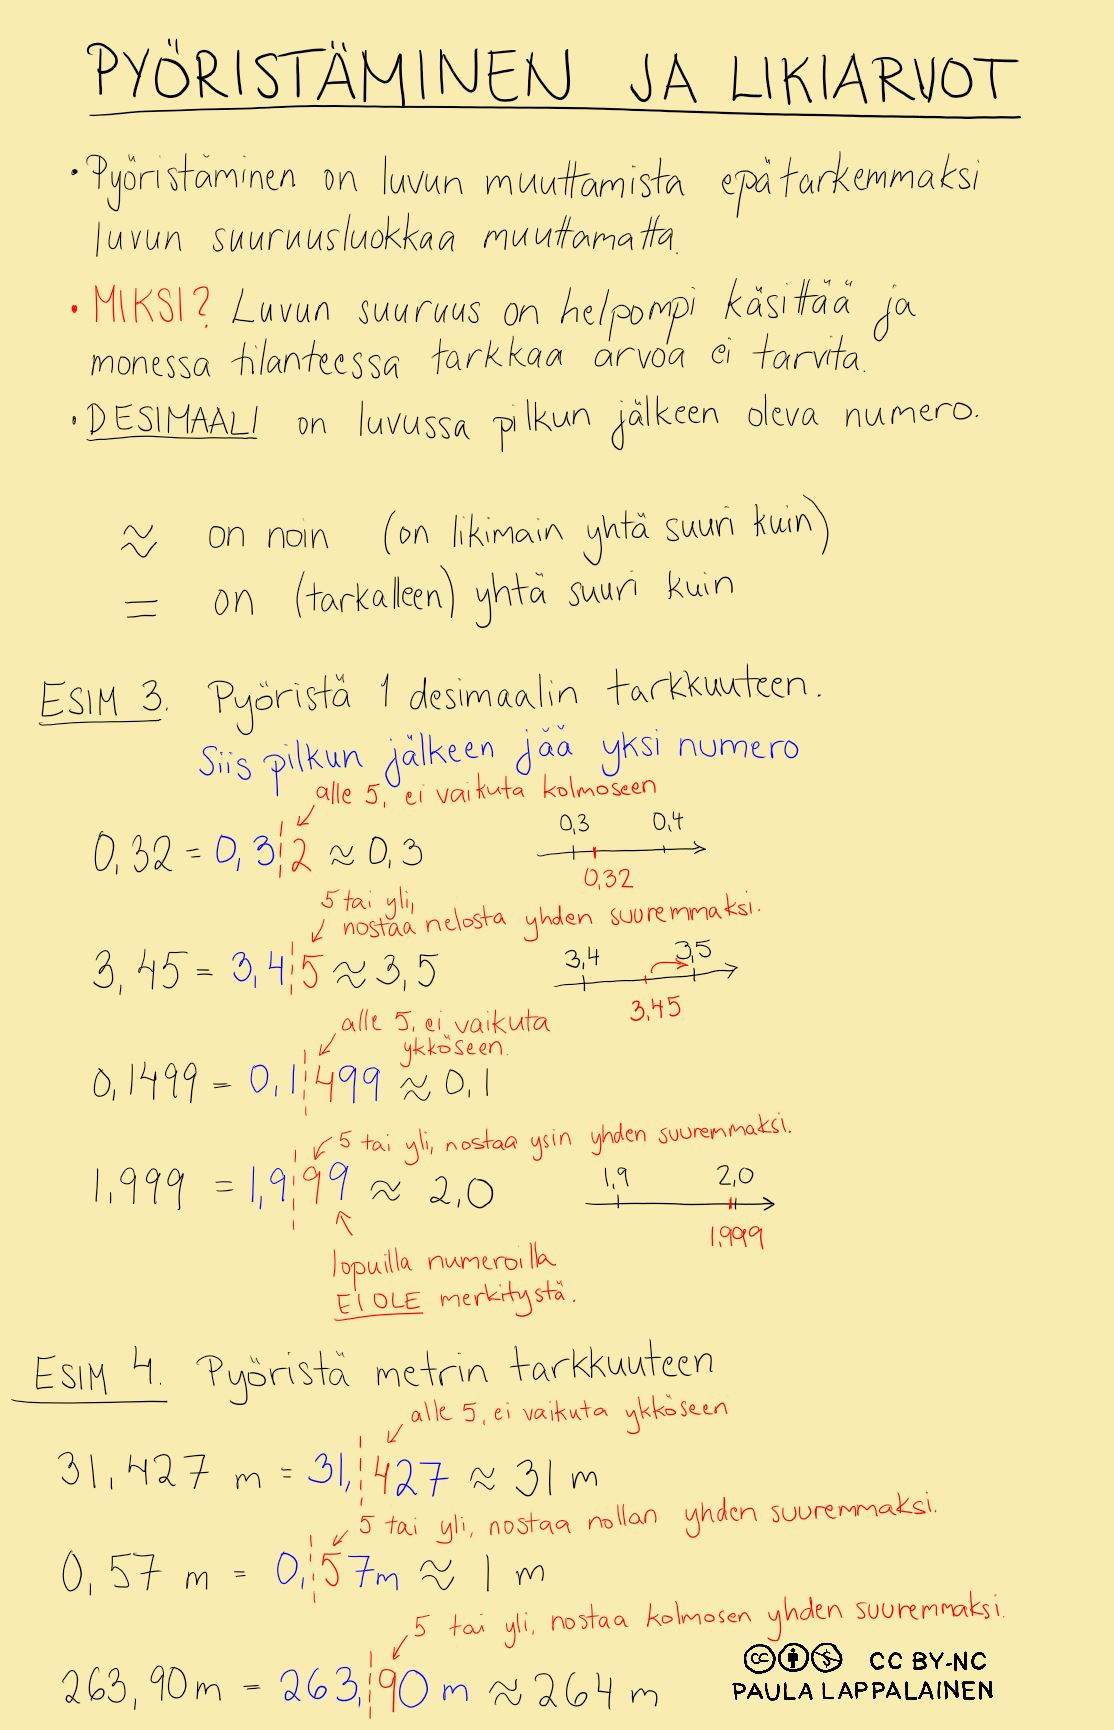 PYÖRISTÄMINEN JA LIKIARVOT
• Pyöristäminen on luvun muuttamista epätarkemmaksi
luvun suuruusluokkaa muuttamatta.
• MIKSI? Luvun suuruus on helpompi käsittää ja
monessa tilanteessa tarkkaa arvoa ei tarvita.
• DESIMAALI on luvussa pilkun jälkeen oleva numero.
≈ on noin (on likimain yhtä suuri kuin)
= on (tarkalleen) yhtä suuri kuin
ESIM 3. Pyöristä 1 desimaalin tarkkuuteen.
Siis pilkun jälkeen jää yksi numero
alle 5, ei vaikuta kolmoseen
0,32 = 0,3¦2 ≈ 0,3
0,3 0,4
0,32
5 tai yli,
nostaa nelosta yhden suuremmaksi.
3,45 = 3,4¦5 ≈ 3,5
3,4 3,5
3,45
alle 5, ei vaikuta
ykköseen.
0,1499 = 0,1¦499 ≈ 0,1
5 tai yli, nostaa ysin yhden suuremmaksi.
1,999 = 1,9¦99 ≈ 2,0
1,9 2,0
1,999
lopuilla numeroilla
EI OLE merkitystä.
ESIM 4. Pyöristä metrin tarkkuuteen
alle 5, ei vaikuta ykköseen
31,427 m = 31,¦427 ≈ 31 m
5 tai yli, nostaa nollan yhden suuremmaksi.
0,57 m = 0,¦57m ≈ 1 m
5 tai yli, nostaa kolmosen yhden suuremmaksi.
263,90m = 263,¦90 m ≈ 264 m
CC BY-NC
PAULA LAPPALAINEN